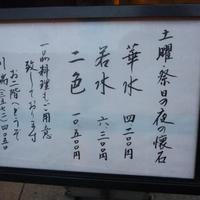 土曜祭日の夜の懐石
華水 四二〇〇円
若水 六三〇〇円
二色 一〇五〇〇円
一品料理もご用意
致しております
お二階へどうぞ